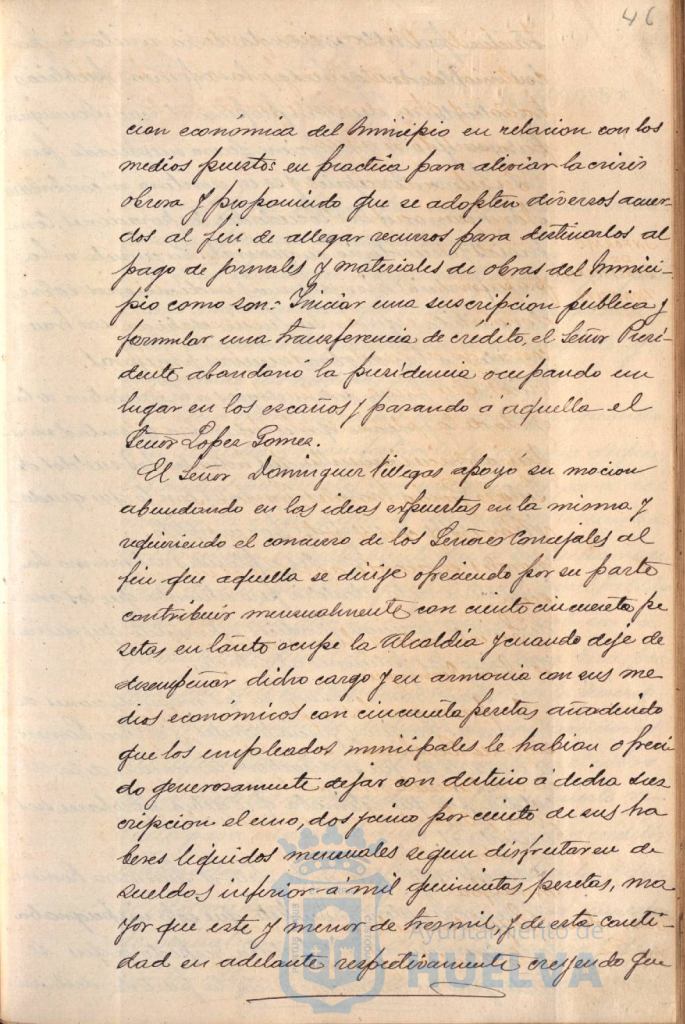 46
cion económica del Municipio en relacion con los
medios puestos en practica para aliviar la crisis
obrera y proponiendo que se adopten diversos acuer-
dos al fin de allegar recursos para destinarlos al
pago de jornales y materiales de obras del Munici-
pio como son: Iniciar una suscripcion publica y
formular una transferencia de crédito, el Señor Presi-
dente abandonó la presidencia ocupando un
lugar en los escaños y pasando á aquella el
Señor Lopez Gomez.
El Señor Dominguez Villegas apoyó su mocion
abundando en las ideas expuestas en la misma y
requiriendo el concurso de los Señores Concejales al
fin que aquella se dirije ofreciendo por su parte
contribuir mensualmente con ciento cincuenta pe
setas en tanto ocupe la Alcaldia y cuando deje de
desempeñar dicho cargo y en armonia con sus me
dios económicos con cincuenta pesetas añadiendo
que los empleados municipales le habian ofreci
do generosamente dejar con destino á dicha sus
cripcion el uno, dos y cinco por ciento de sus ha
beres líquidos mensuales segun disfrutaren de
sueldos inferior á mil quinientas pesetas, ma
yor que este y menor de tres mil, y de esta canti-
dad en adelante respectivamente creyendo que
Ayuntamiento de
HUELVA